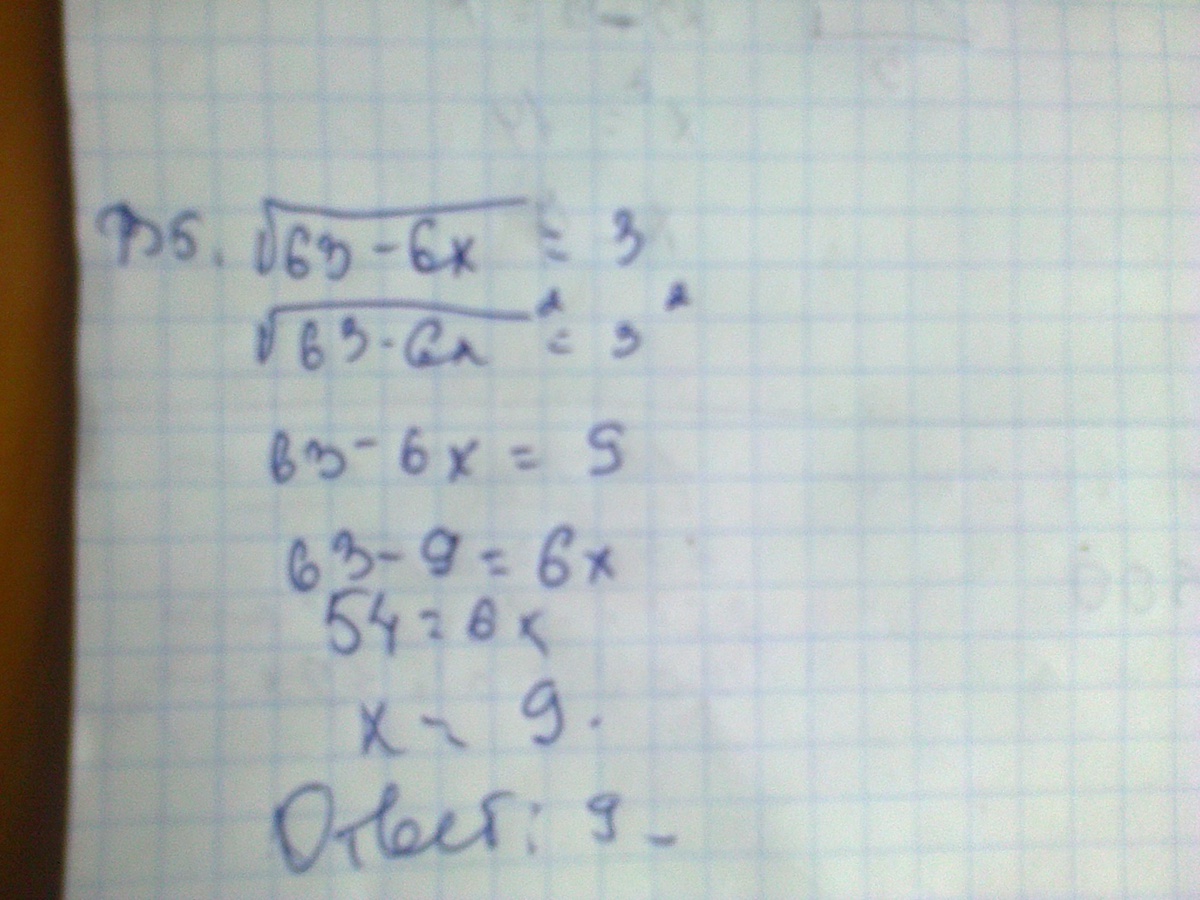 B5. √63-6x = 3
√63-6x² = 3²
63-6x = 9
63-9=6x
54=6x
x = 9.
Ответ: 9